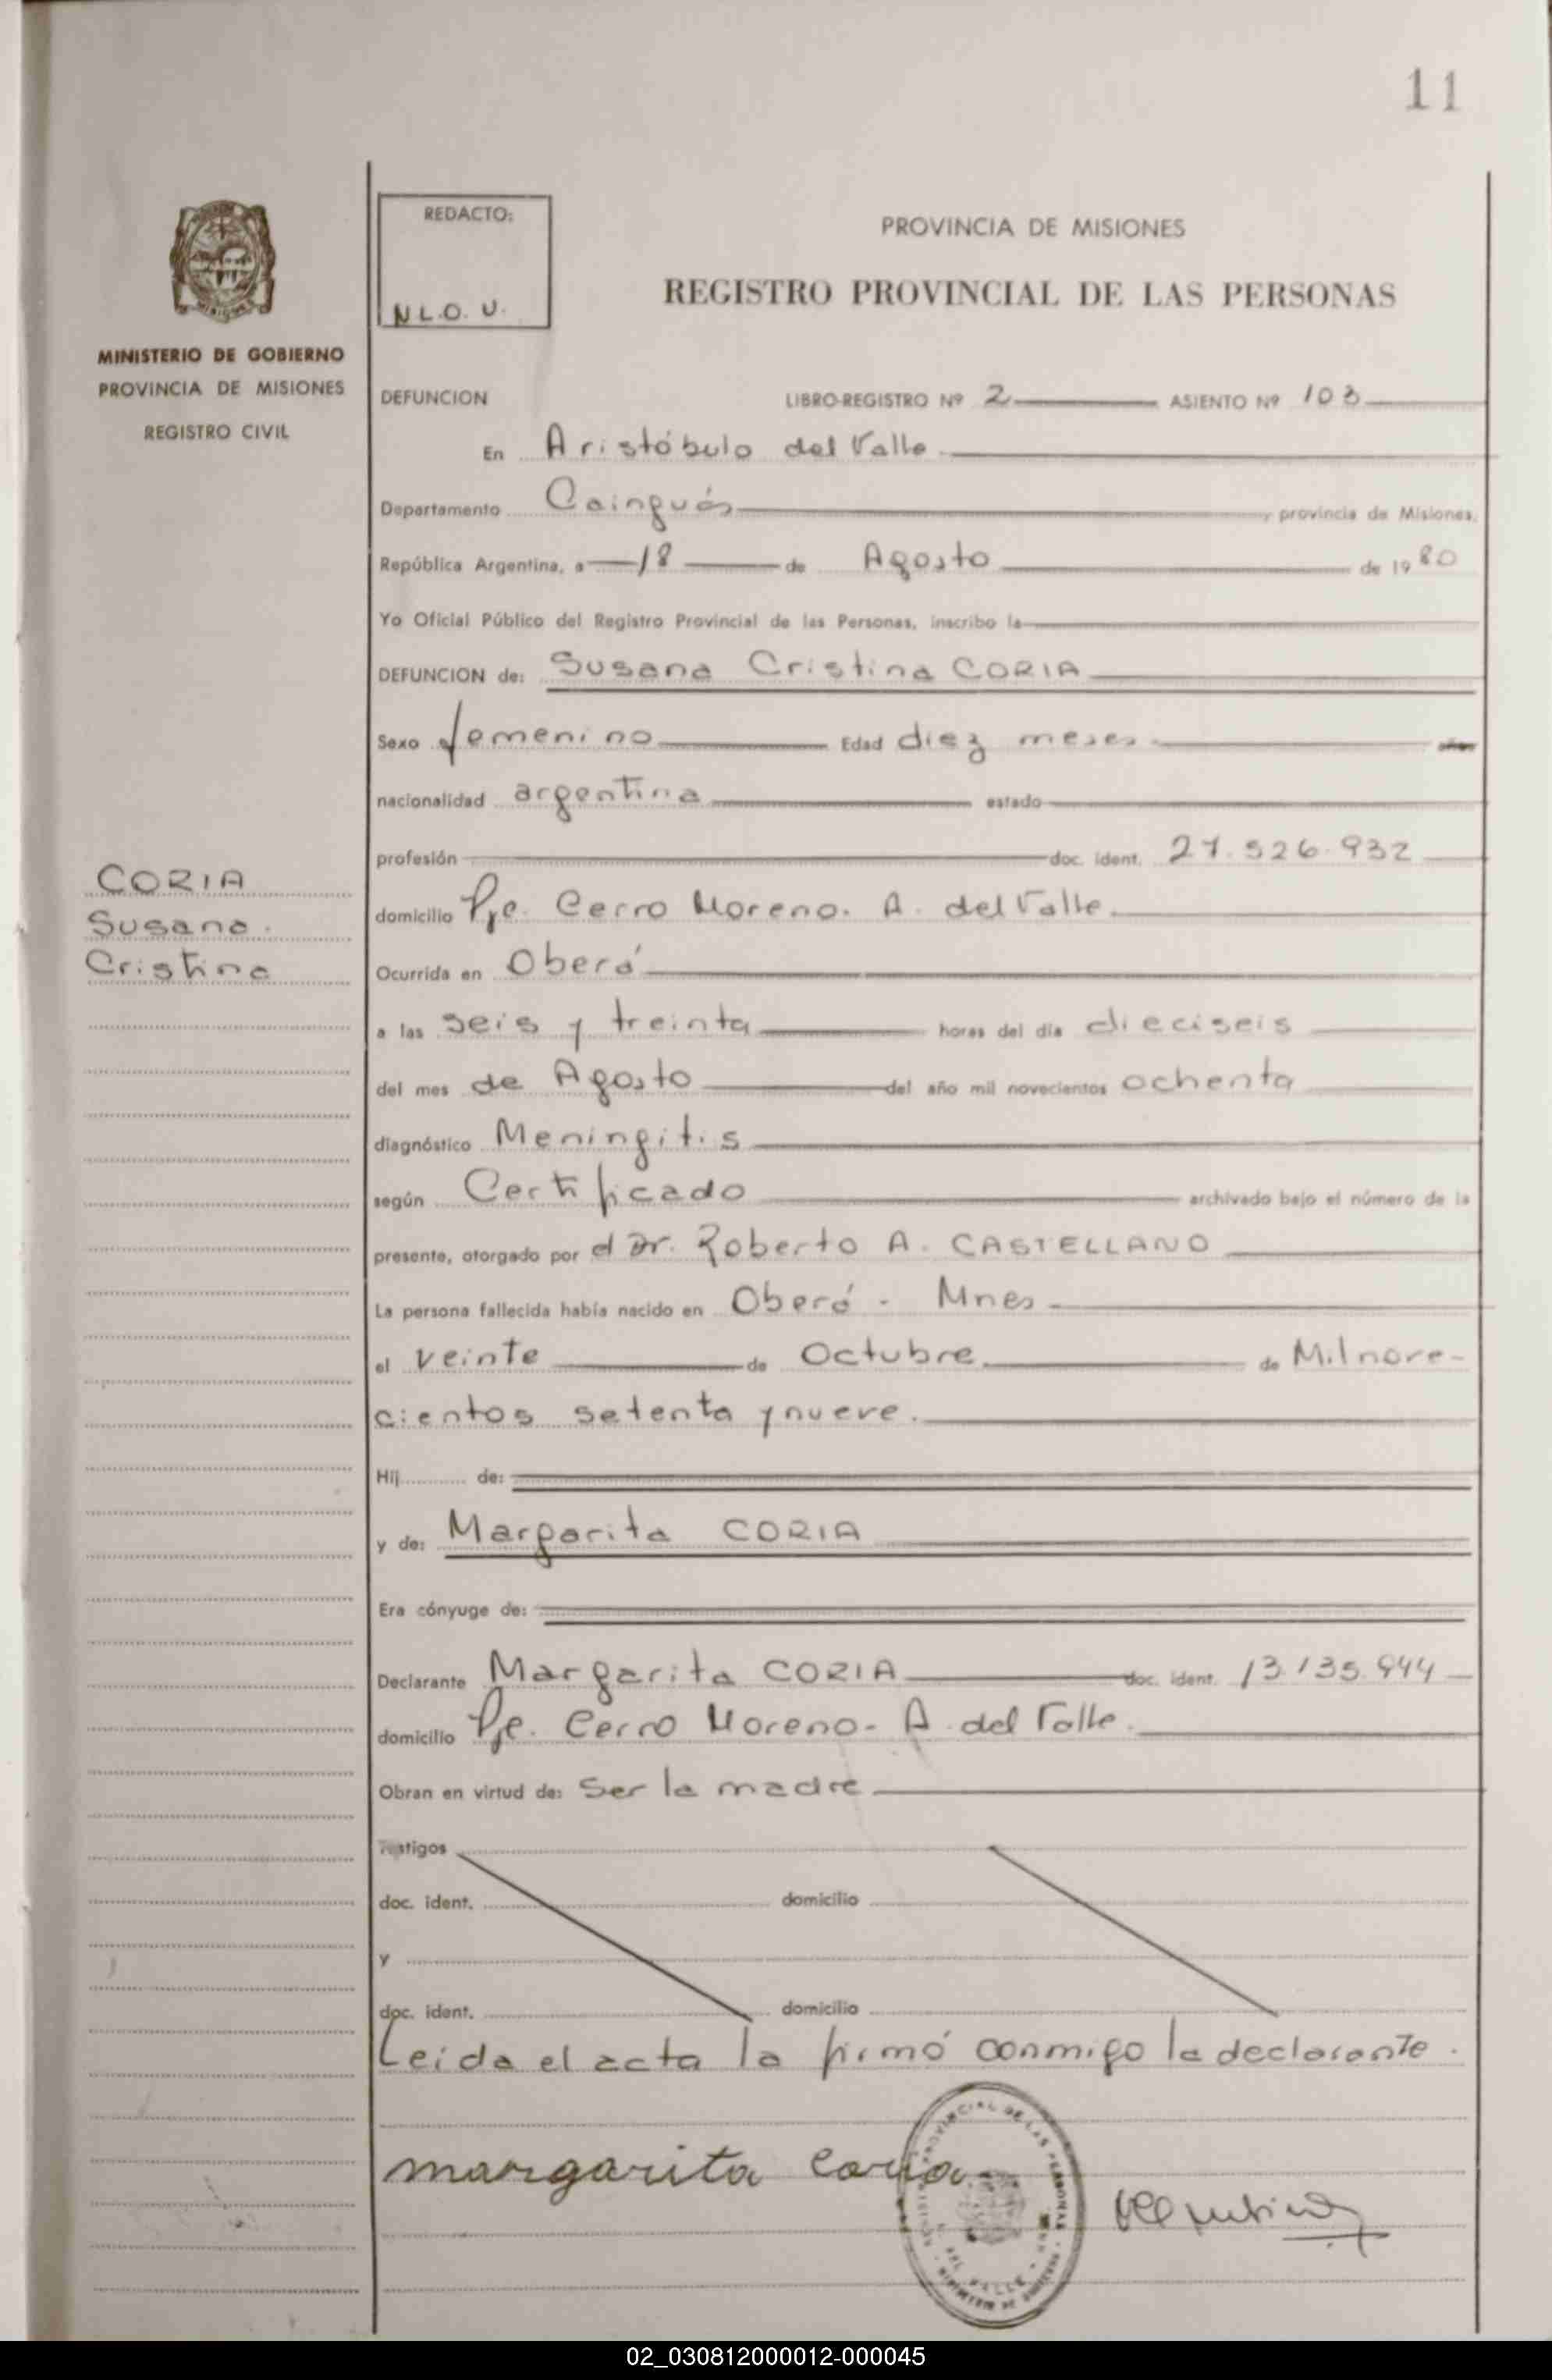 11
REDACTO:
N.L.O.U.
PROVINCIA DE MISIONES
REGISTRO PROVINCIAL DE LAS PERSONAS
MINISTERIO DE GOBIERNO
PROVINCIA DE MISIONES
REGISTRO CIVIL
DEFUNCION LIBRO-REGISTRO Nº 2 ASIENTO Nº 103
En Aristóbulo del Valle
Departamento Cainguás, provincia de Misiones,
República Argentina, a 18 de Agosto de 1980
Yo Oficial Público del Registro Provincial de las Personas, inscribo la
DEFUNCION de: Susana Cristina CORIA
Sexo femenino Edad diez meses años
nacionalidad argentina estado
profesión doc. ident. 27.526.932
CORIA
Susana
Cristina
domicilio Pje. Cerro Moreno. A. del Valle.
Ocurrida en Oberá
a las seis y treinta horas del día dieciseis
del mes de Agosto del año mil novecientos ochenta
diagnóstico Meningitis
según Certificado archivado bajo el número de la
presente, otorgado por el Dr. Roberto A. CASTELLANO
La persona fallecida había nacido en Oberá - Mnes
el veinte de Octubre de Milnove-
cientos setenta y nueve.
Hij de:
y de: Margarita CORIA
Era cónyuge de:
Declarante Margarita CORIA doc. ident. 13.135.944
domicilio Pje. Cerro Moreno - A. del Valle.
Obran en virtud de: Ser la madre
Testigos
doc. ident. domicilio
y
doc. ident. domicilio
Leida el acta la firmó conmigo la declarante.
margarita coria
PROVINCIAL DE LAS PERSONAS
DEL VALLE
MINISTERIO DE
02_030812000012-000045